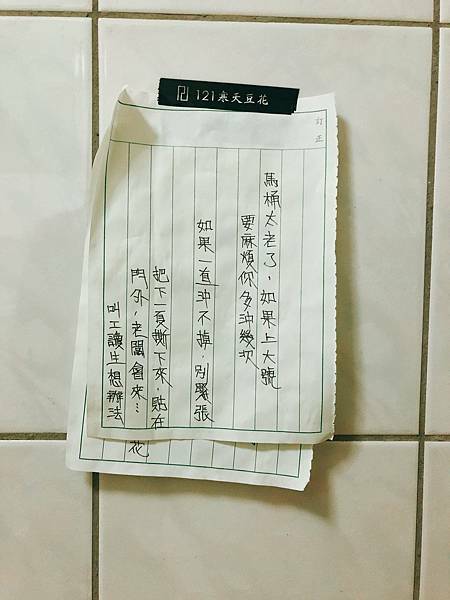 121寒天豆花
訂正
馬桶太老了，如果上大號
要麻煩你多沖幾次
如果一直沖不掉，別緊張
把下一頁撕下來，貼在
門外，老闆會來…
叫工讀生想辦法
花